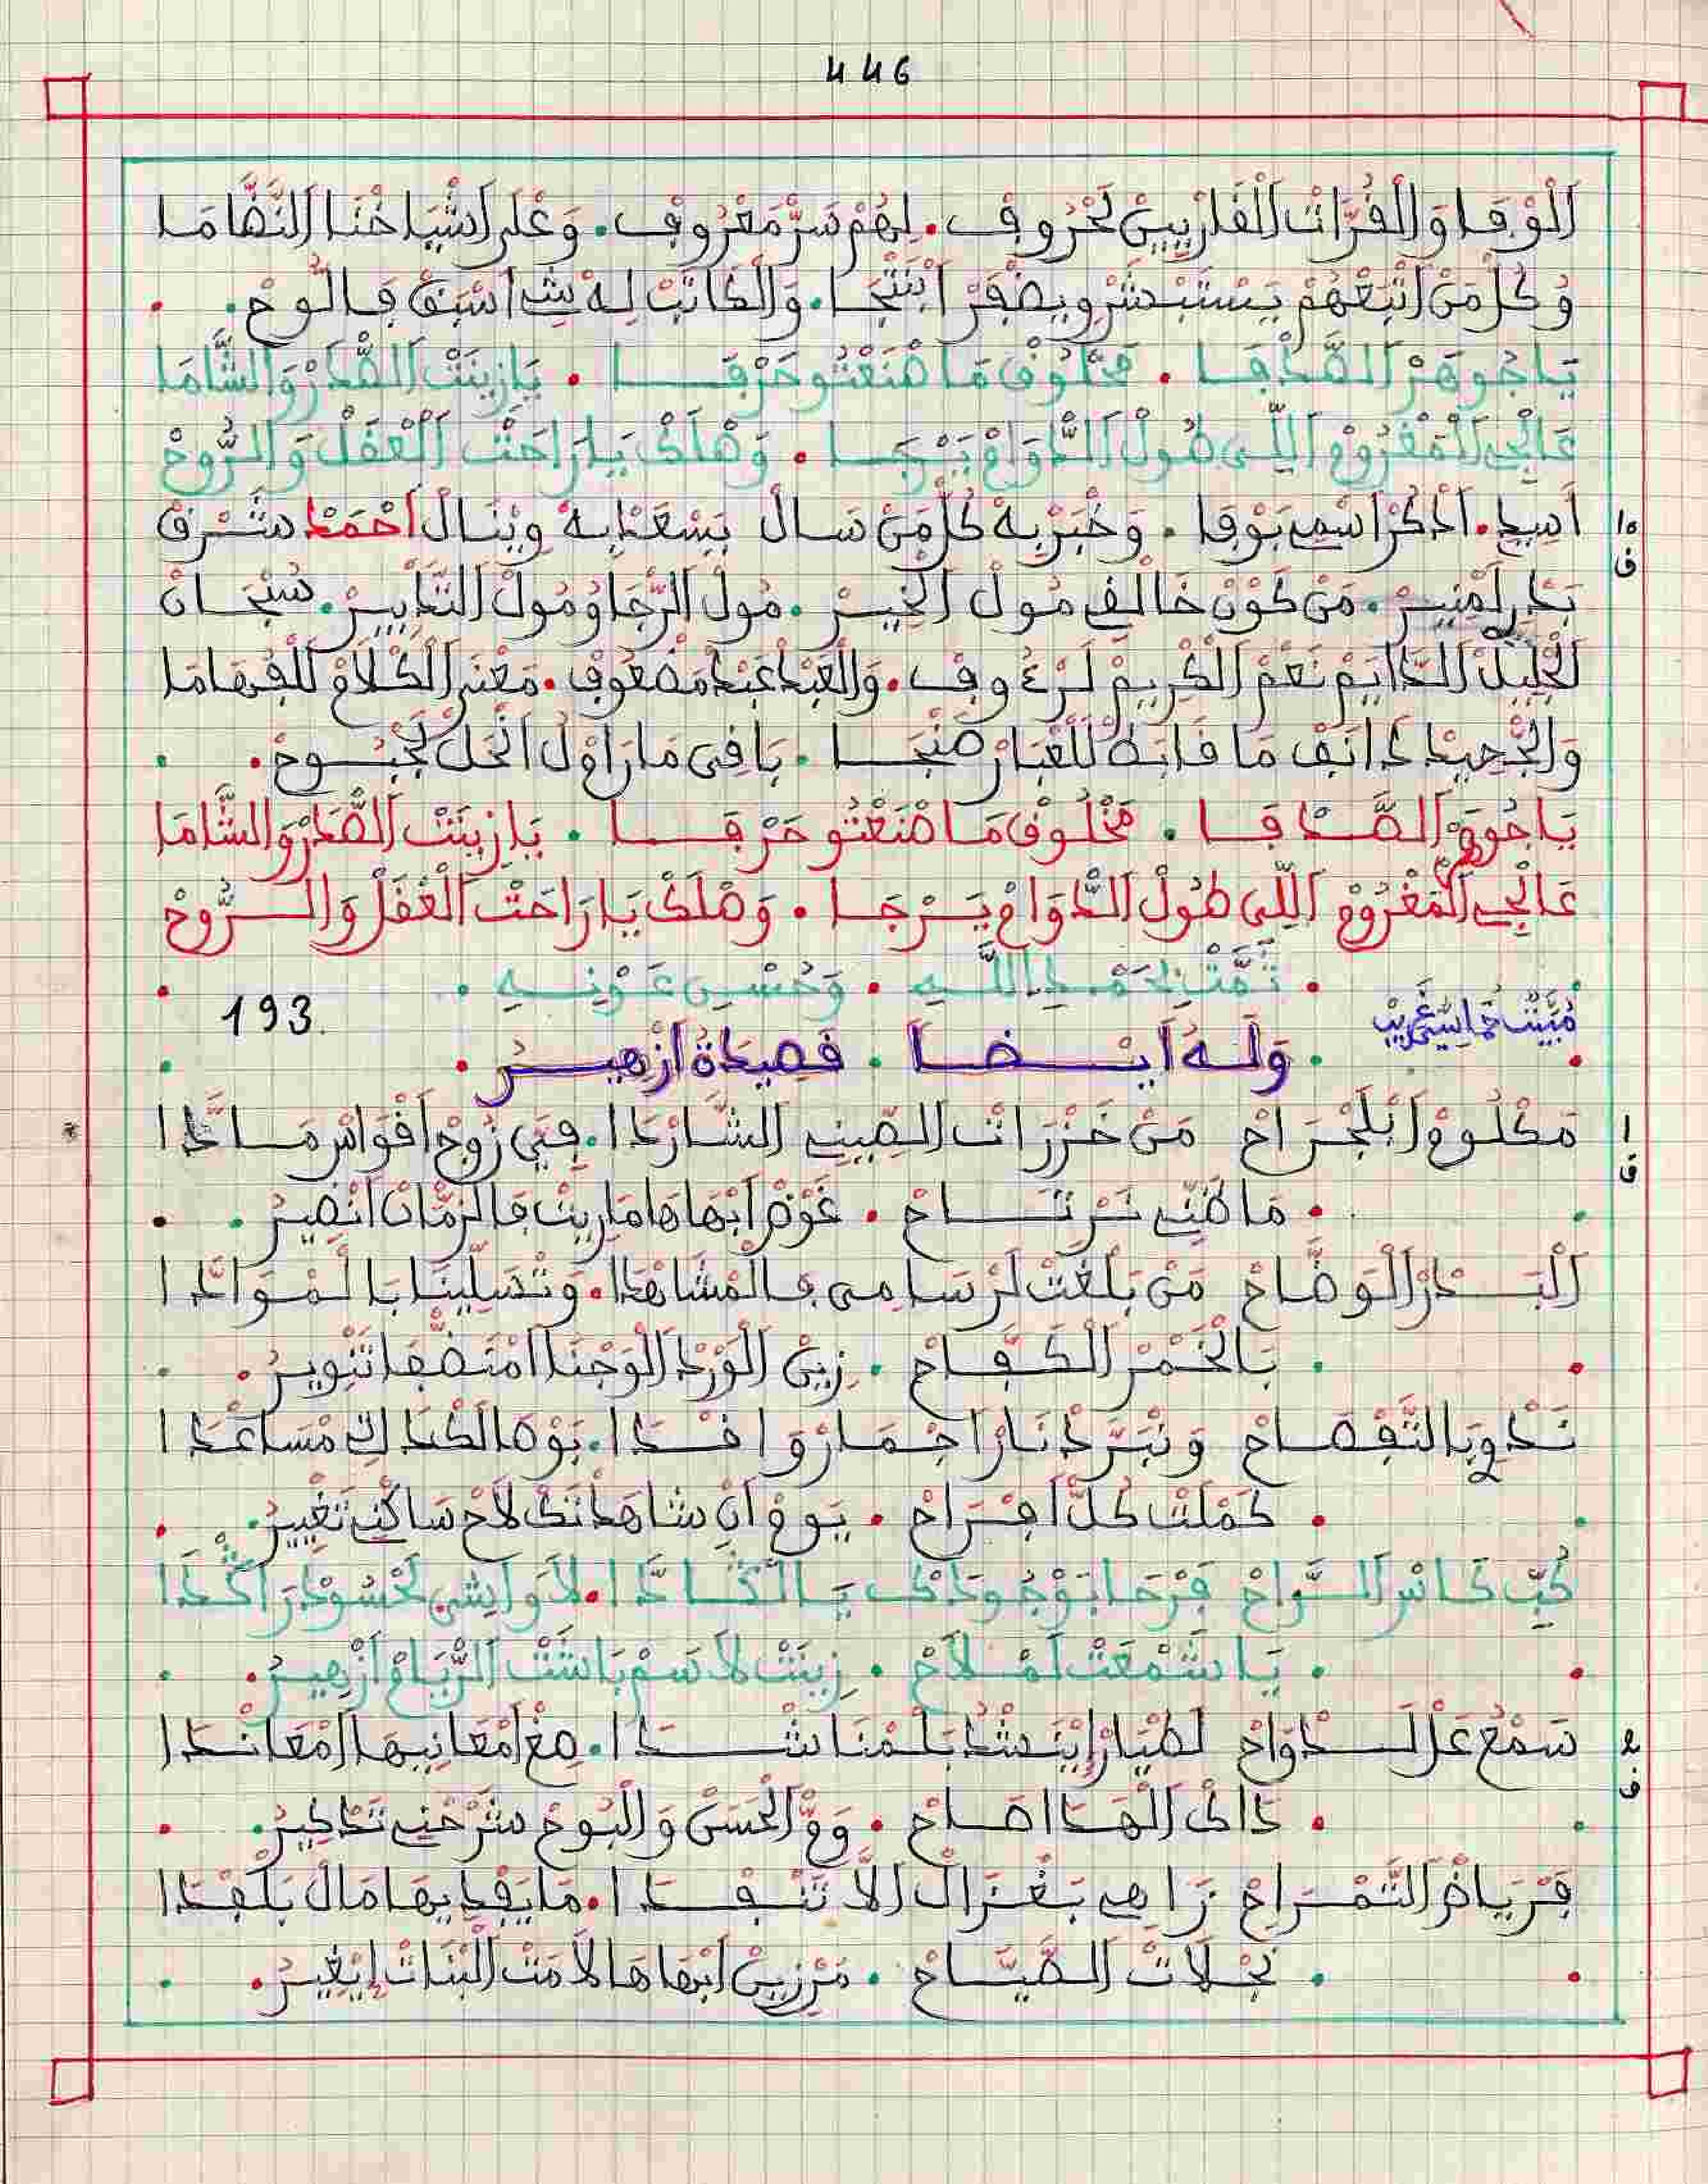 446
اَلْوْفَا وَالْقُرَّاتْ الْقَارْيِينْ لَحْرُوفْ. لِهُمْ سَرّْ مَعْرُوفْ. وَعْلَى اَشْيَاخْنَا النَّظَّامَا
وُكُلّْ مَنْ اَتْبَعْهُمْ يَسْتَبْشَرْ وِيضْفَرْ اَبْنَتْجَا. وَالْكَاتَبْ لِهْ شِ اسْبَقْ فَالُّوحْ.
يَاجُوهَرْ الصَّدْفَا. مَخْلُوقْ مَا صْنَعْتُو حَرْفَا. يَازِينَتْ الصَّدَرْ وَالشَّامَا
عَالْجِ اَلْمَغْرُومْ اَللِّي طُولْ الدَّوَامْ يَرْجَا. وَصْلَكْ يَا رَاحَتْ الْعْقَلْ وَالرُّوحْ
10
ف
اَسِيدِ. اَدْكُرْ اَسْمِي بَوْفَا. وَخْبَرْ بِهْ كُلّْ مَنْ سَالْ يَسْعَدْ بِهْ وِينَالْ اَحْمَدْ شَرْقْ
بَدْرِ لَمْنِيرْ. مَنْ كَوْنْ خَالْفِ مُولْ الْخِيرْ. مُولْ الرّْجَا وُمُولْ التَّدَابِيرْ. سُبْحَانْ
لَجْلِيلْ الدَّايَمْ نَعْمْ الْكْرِيمْ لَرْءُوفْ. وَالْعَبْدْ عَبْدْ مَضْعُوفْ. مَعْنَى الْكْلَامْ لَلْفُهَامَا
وَالْجّْحِيدْ دَانَفْ مَا فَادَهْ لَلْغْبَارْ ضَنْجَا. بَاقِي مَا رَا وْلْ انْحَلْ لَجْبُوحْ.
يَاجُوهَرْ الصَّدْفَا. مَخْلُوقْ مَا صْنَعْتُو حَرْفَا. يَازِينَتْ الصَّدَرْ وَالشَّامَا
عَالْجِ اَلْمَغْرُومْ اَللِّي طُولْ الدَّوَامْ يَرْجَا. وَصْلَكْ يَا رَاحَتْ الْعْقَلْ وَالرُّوحْ
تَمَّتْ بِحَمْدِ اللَّهِ. وَحُسْنِ عَوْنِهِ.
193.
وَلَهُ اَيْضًا. قَصِيدَةْ اَزْهِيرْ.
1
ف
مَكْلُومْ اَبْلَجْرَاحْ مَنْ خَزْرَاتْ الصِّينِي الشَّارْدَا. فِيَ زُوجْ اَقْوَاسْ مَادَّا
مَا ظَنِّي نَرْتَاحْ. غَوْضْ اَبْهَاهَا مَا رِيتْ فَالزّْمَانْ اَنْضِيرْ.
اَلْبَدْرْ الْوَضَّاحْ مَنْ بَلْغَتْ لَرْسَامِي فَالْمْشَاهْدَا. وَتْسَلِّينَا بَالْمْوَادَّا
بَالْخَمْرْ الْكَفَّاحْ. زِينْ الْوَرْدْ الْوَجْنَا اَمْنَضّْفَا تَنْوِيرْ.
نَدْوِي بَالتَّفْصَاحْ وَنْبَرَّدْ نَارْ اَجْمَارْ وَاقْدَا. بَوْصَالَكْ دَاكْ مْسَاعْدَا
كَمْلَتْ كُلّْ اَفْرَاحْ. يَومْ اَنْ شَاهَدْتَكْ لَاحْ سَاكْنِي تَغْيِيرْ.
كُبِّ كَاسْ الرَّاحْ فَرْحَا بَوْجُودَكْ يَا الْكَادَّا. لَا وَاشِي لَحْسُودْ رَاكْدَا
يَا شَمْعَتْ لَمْلَاحْ. زِينَتْ لَاسَمْ بَاشَتْ الرْيَامْ اَزْهِيرْ.
2
ف
سَمْعْ عْلَ لَدْوَاحْ لَطْيَارْ اِيتَنْشَدْ بَلْمْنَاشْدَا. صِغْ اَمْعَانِيهَا اَمْعَانْدَا
دَاكْ الْهَدَا صَاحْ. وَمّْ الْحَسَنْ وَالْبُوحْ شَرْحْنِي تَدْكِيرْ.
فَرْيَاضْ التَّمْرَاحْ زَاهِي بَغْزَالْ اَلَّا تَنْفْدَا. مَا يَفْدِيهَا مَالْ بَلْفْدَا
نَجْلَاتْ الصِّيَاحْ. مَنْ زِينْ اَبْهَاهَا لَامَتْ الْبْنَاتْ اِيغِيرْ.